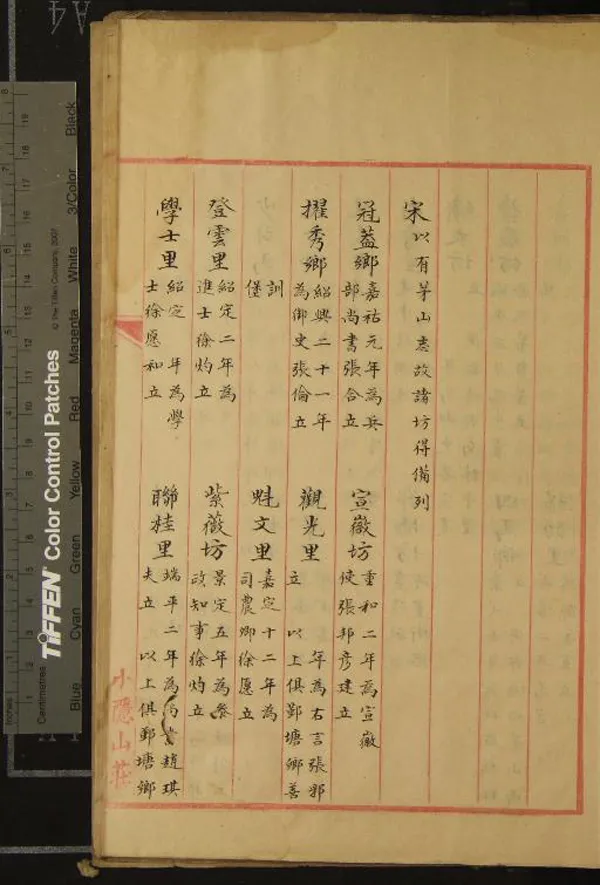 宋以有茅山故諸坊得備列
冠蓋鄉
嘉祐元年為兵
部尚書張合立
宣徽坊
重和二年為宣徽
使張邦彥建立
擢秀鄉
紹興二十一年
為御史張倫立
觀光里
年為右言張邪
立 以上俱鄞塘鄉善
訓
堡
魁文里
嘉定十二年為
司農卿徐愿立
登雲里
紹定二年為
進士徐灼立
紫薇坊
景定五年為參
政知事徐灼立
學士里
紹定 年為學
士徐愿和立
聯桂里
端平二年為尚書趙琪
夫立 以上俱鄞塘鄉
小隱山莊
A4
TIFFEN® Color Control Patches
© The Tiffen Company, 2007
Inches
Centimetres
Blue Cyan Green Yellow Red Magenta White 3/Color Black